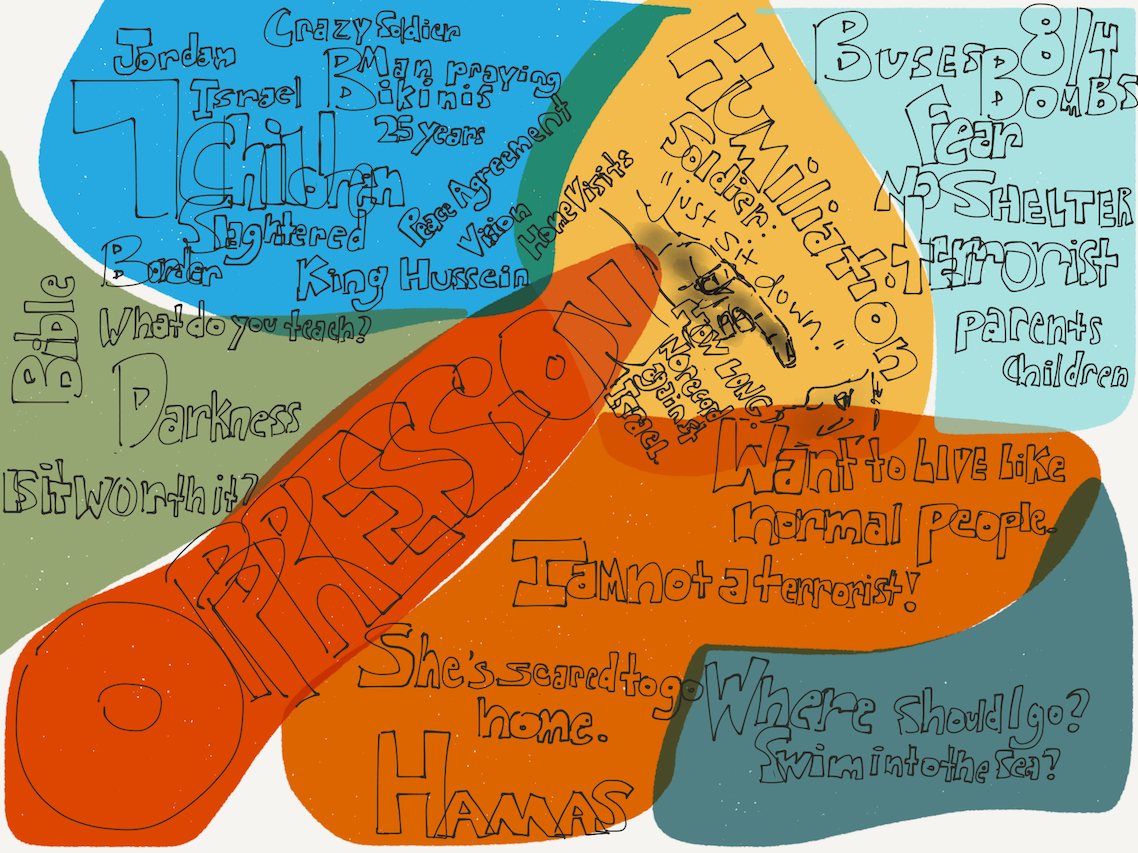 Crazy Soldier
Jordan
Israel
Man praying
Bikinis
25 years
7 Children
Slaghtered
Border
King Hussein
Peace Agreement
Vision
Home Visits
HUMiliation
Soldier:
"just sit down."
HOW LONG
No record
against
Israel
Buses 8/4
BOMBS
Fear
NO SHELTER
Terrorist
Parents
Children
Bible
What do you teach?
Darkness
Is it worth it?
OPPRESSION
Want to LIVE Like
normal people.
I am not a terrorist!
She's scared to go
home.
HAMAS
Where should I go?
Swim into the Sea?